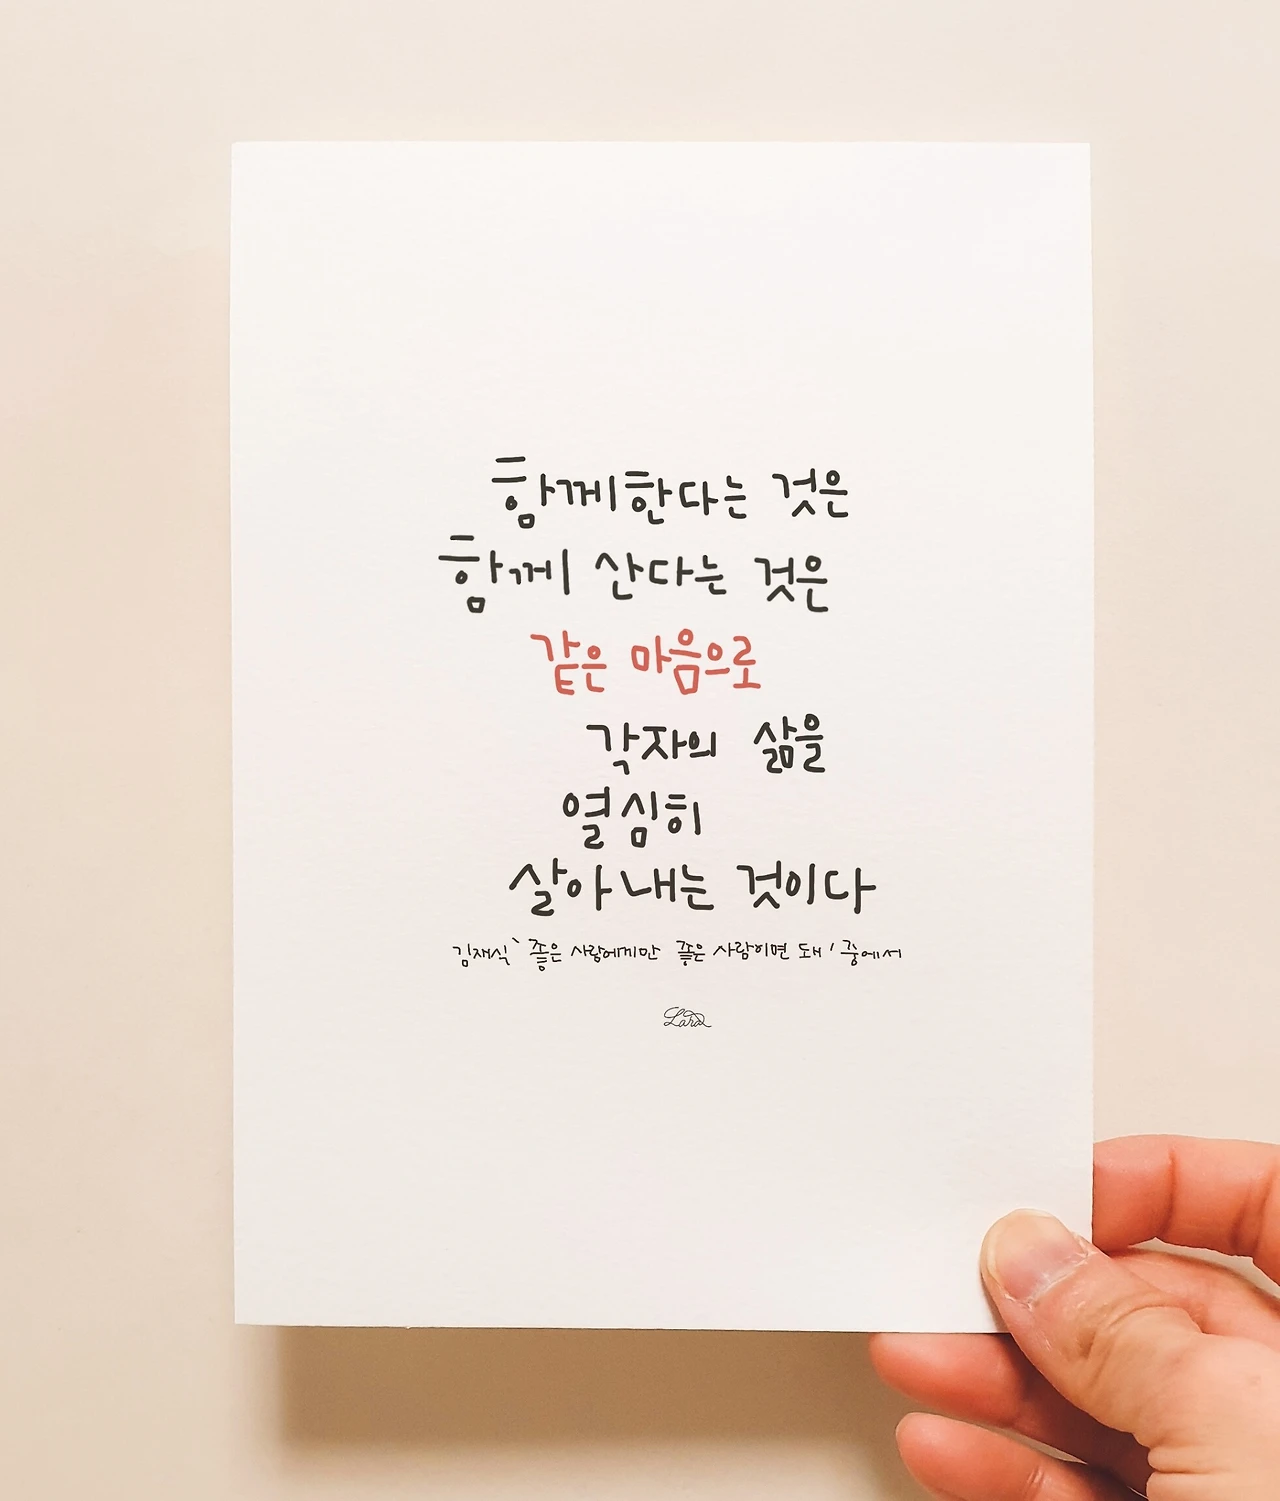 함께한다는 것은
함께 산다는 것은
같은 마음으로
각자의 삶을
열심히
살아내는 것이다
김재식 '좋은 사람에게만 좋은 사람이면 돼' 중에서
Lara